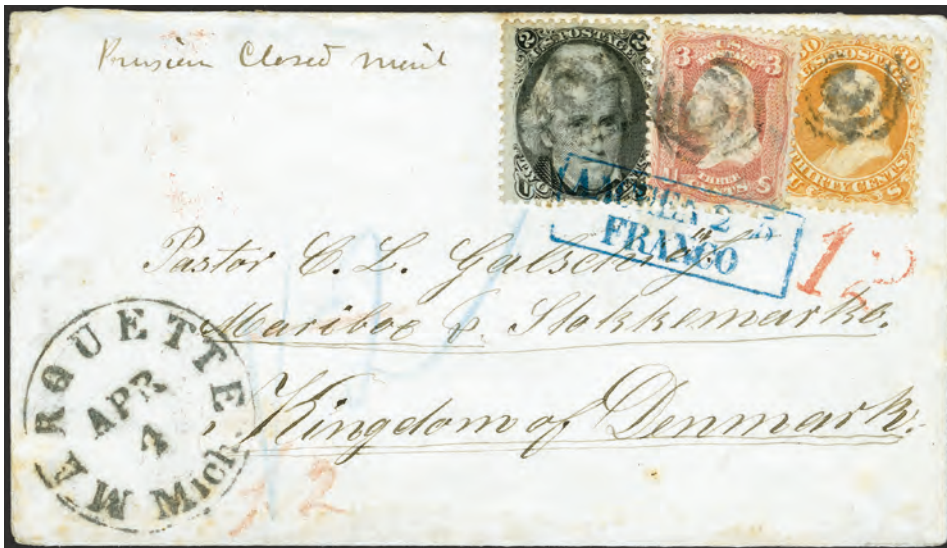 Prussien Closed mail
2 U.S. POSTAGE 2
3 U.S. POSTAGE 3
THREE CENTS
30 U.S. POSTAGE 30
THIRTY CENTS
U S
AACHEN 2 5
FRANCO
12
Pastor C. L. Galschiøt
Mariboe p. Stokkemarke.
Kingdom of Denmark.
MARQUETTE
APR
4
MICH
32